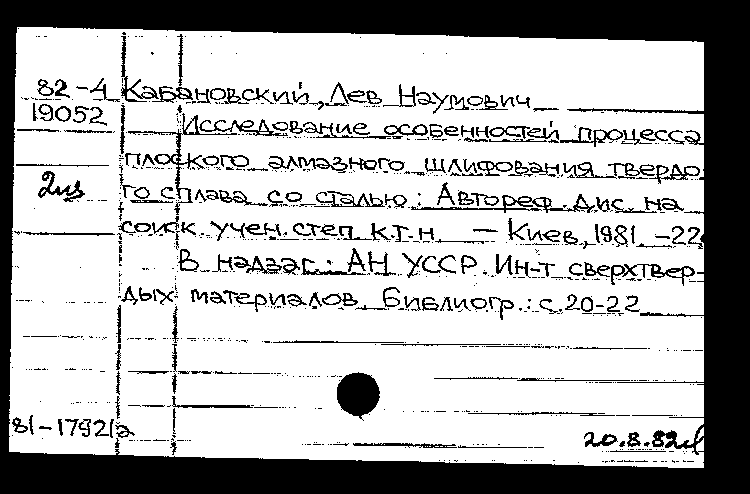 82-4 Кабановский, Лев Наумович
19052
Исследование особенностей процесса
плоского алмазного шлифования твердо
2из го сплава со сталью: Автореф. дис. на
соиск. учен. степ. к.т.н. — Киев, 1981. -22с
В надзаг.: АН УССР. Ин-т сверхтвер-
дых материалов. Библиогр.: с.20-22
81-17921а
20.8.82